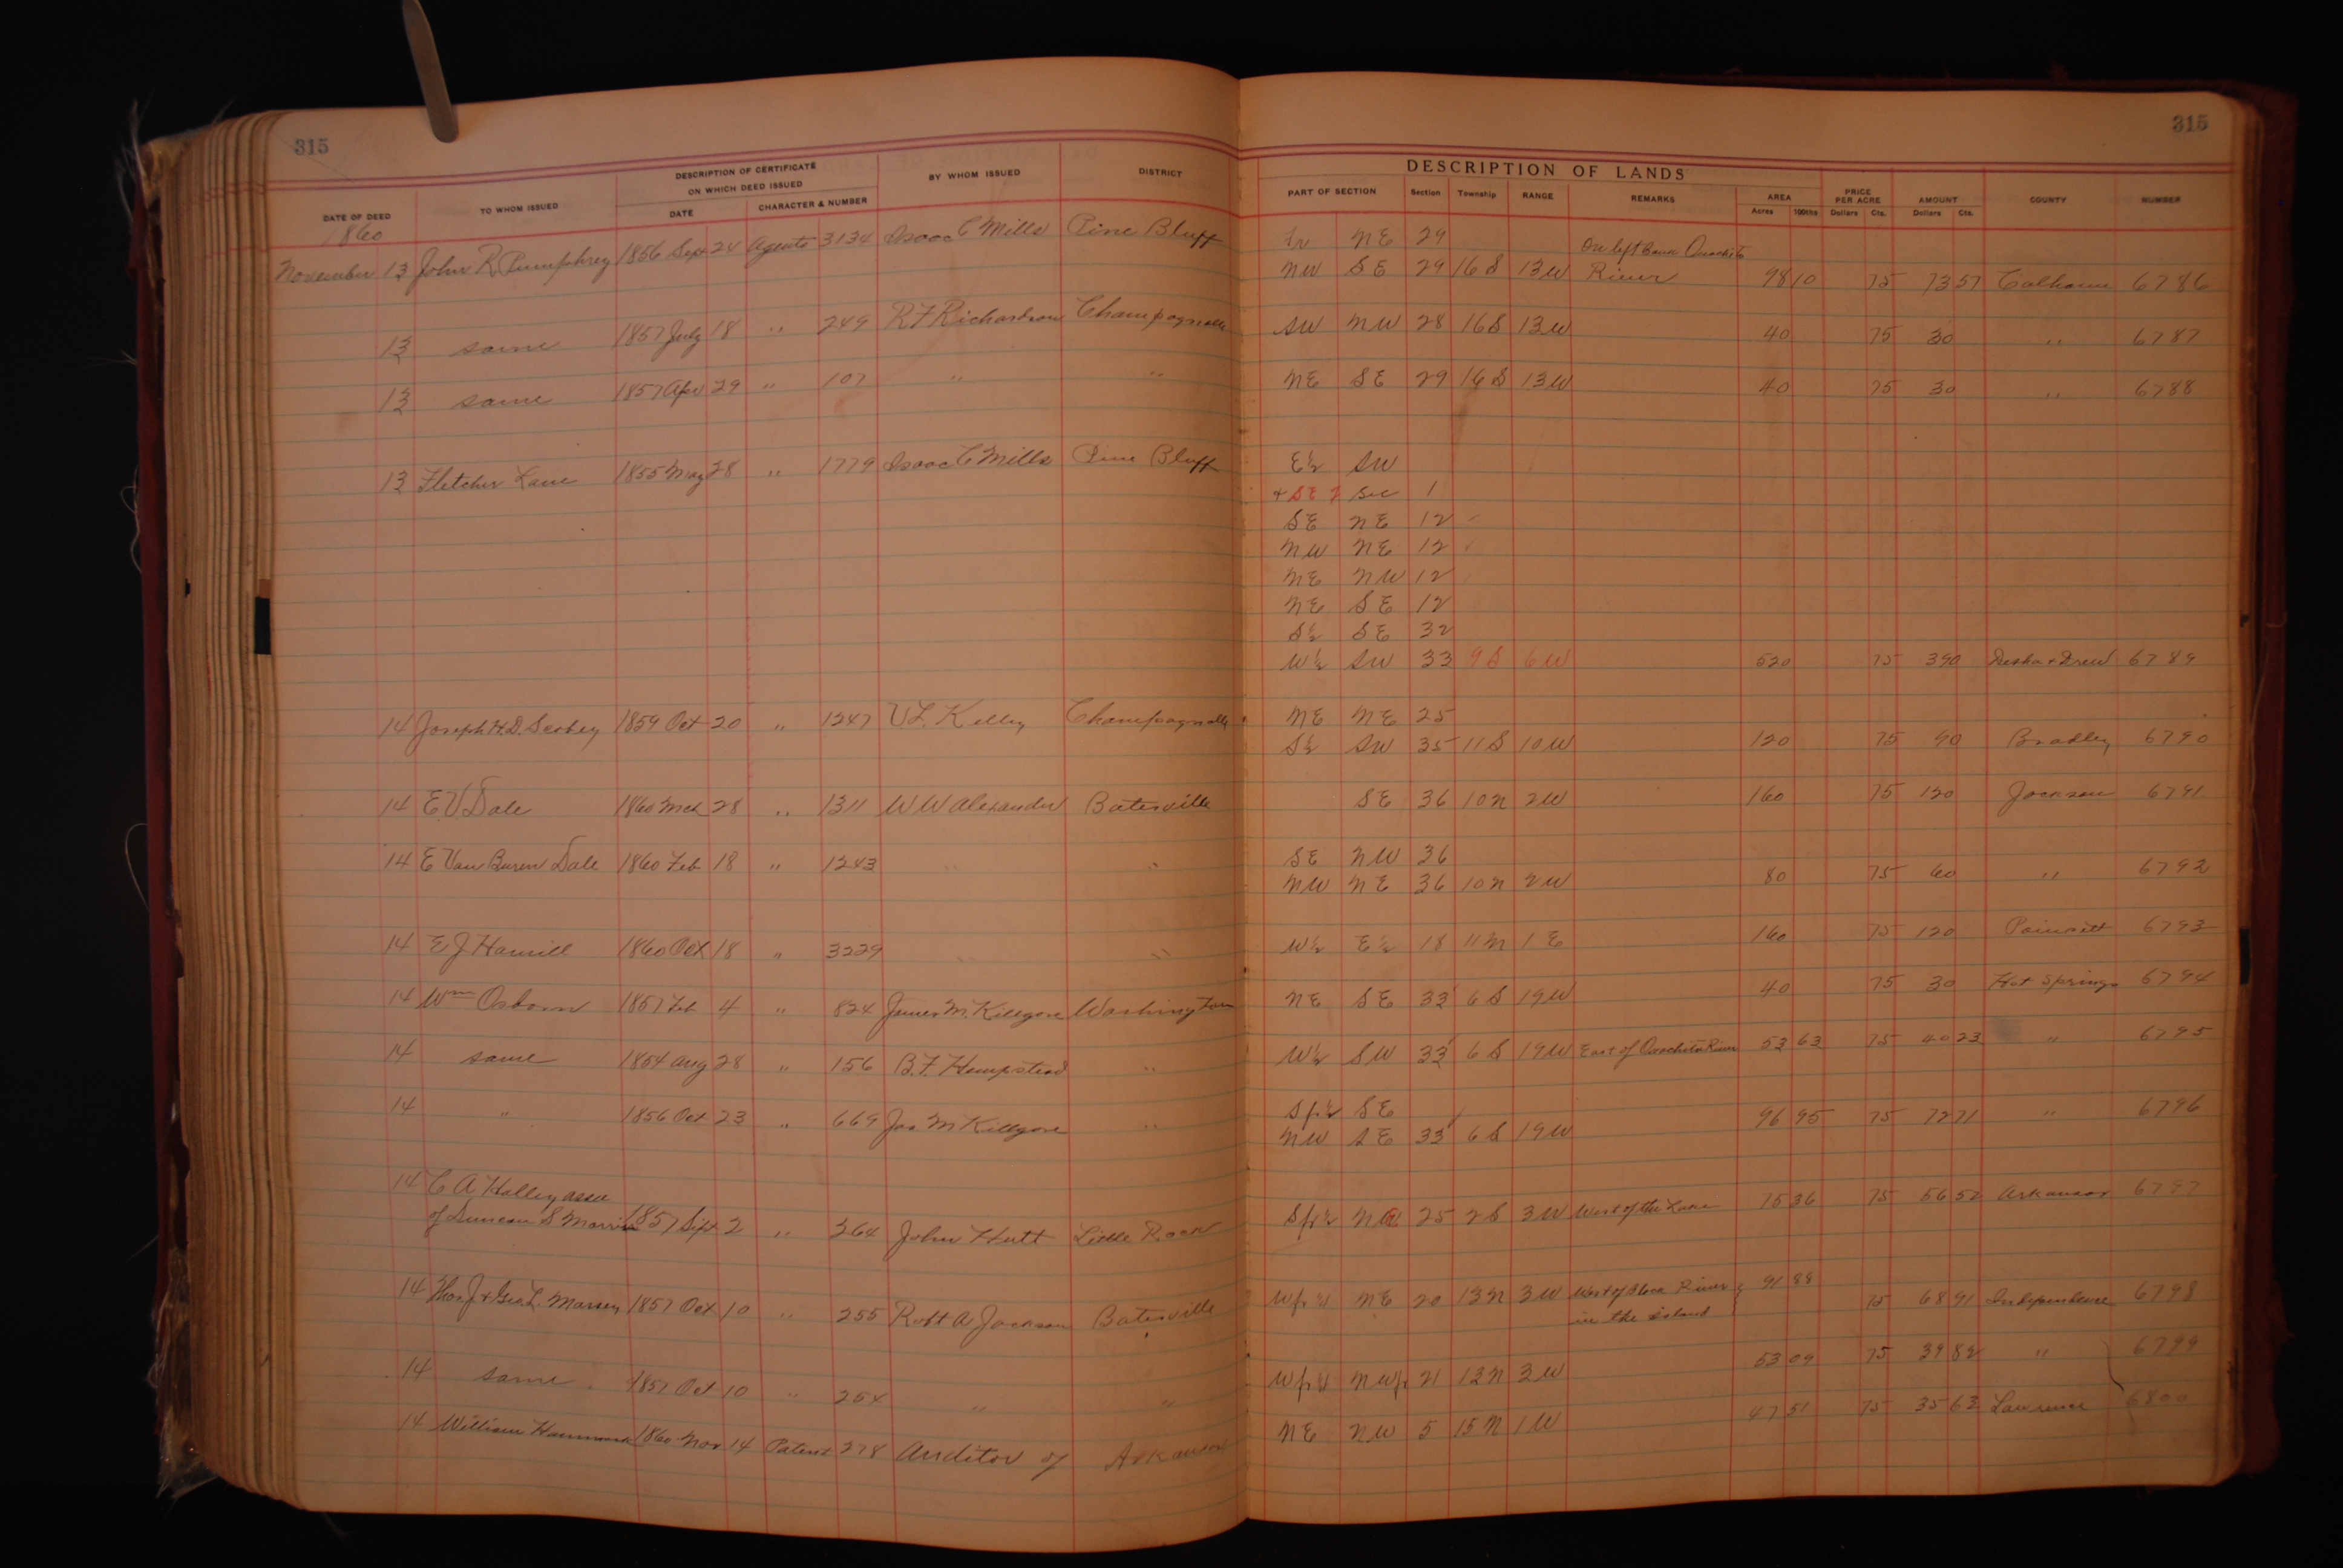 315
315
DESCRIPTION OF CERTIFICATE ON WHICH DEED ISSUED
DESCRIPTION OF LANDS
DATE OF DEED TO WHOM ISSUED DATE CHARACTER & NUMBER BY WHOM ISSUED DISTRICT PART OF SECTION Section Township RANGE REMARKS AREA Acres 100ths PRICE PER ACRE Dollars Cts. AMOUNT Dollars Cts. COUNTY NUMBER
1860
Fr NE 29 On left bank Ouachita
November 13 John R. Pumphrey 1856 Sept 24 Agents 3134 Isaac C Mills Pine Bluff NW SE 29 16 S 13 W River 98 10 75 73 57 Calhoun 6786
13 same 1857 July 18 " 249 R F Richardson Champagnolle SW NW 28 16 S 13 W 40 75 30 " 6787
13 same 1857 Apr 29 " 107 " " NE SE 29 16 S 13 W 40 75 30 " 6788
13 Fletcher Lane 1855 May 28 " 1779 Isaac C Mills Pine Bluff E½ SW
+ SE Sec 1
SE NE 12
NW NE 12
NE NW 12
NE SE 12
S½ SE 32
W½ SW 33 9 S 6 W 520 75 390 Desha + Drew 6789
14 Joseph H.D. 1859 Oct 20 " 1247 V.L. Kelley Champagnolle NE NE 25
S½ SW 35 11 S 10 W 120 75 90 Bradley 6790
14 E V Dale 1860 Mch 28 " 1311 W W Alexander Batesville SE 36 10 N 2 W 160 75 120 Jackson 6791
14 E Van Buren Dale 1860 Feb 18 " 1243 " " SE NW 36
NW NE 36 10 N 2 W 80 75 60 " 6792
14 E J Hamill 1860 Oct 18 " 3229 " " W½ E½ 18 11 N 1 E 160 75 120 Poinsett 6793
14 Wm Osborn 1857 Feb 4 " 824 James M. Killgore Washington NE SE 33 6 S 19 W 40 75 30 Hot Springs 6794
14 same 1854 Aug 28 " 156 B.F. Hempstead " W½ SW 33 6 S 19 W East of Ouachita River 53 63 75 40 23 " 6795
14 " 1856 Oct 23 " 669 Jas M Killgore " S fr ½ SE
NW SE 33 6 S 19 W 96 95 75 72 71 " 6796
14 C A Halley assee
of Duncan S Morris 1857 Sept 2 " 264 John Hutt Little Rock S fr ½ 25 2 S 3 W West of the Lake 75 36 75 56 52 Arkansas 6797
14 Thos. J + Geo. L. Massey 1857 Oct 10 " 255 Robt A Jackson Batesville W fr ½ NE 20 13 N 3 W West of Black River 91 88 75 68 91 Independence 6798
in the island
14 same 1857 Oct 10 " 254 " " W fr ½ NW fr 21 13 N 3 W 53 09 75 39 82 " 6799
14 William Hammack 1860 Nov 14 Patent 278 Auditor of Arkansas NE NW 5 15 N 1 W 47 51 75 35 63 Lawrence 6800